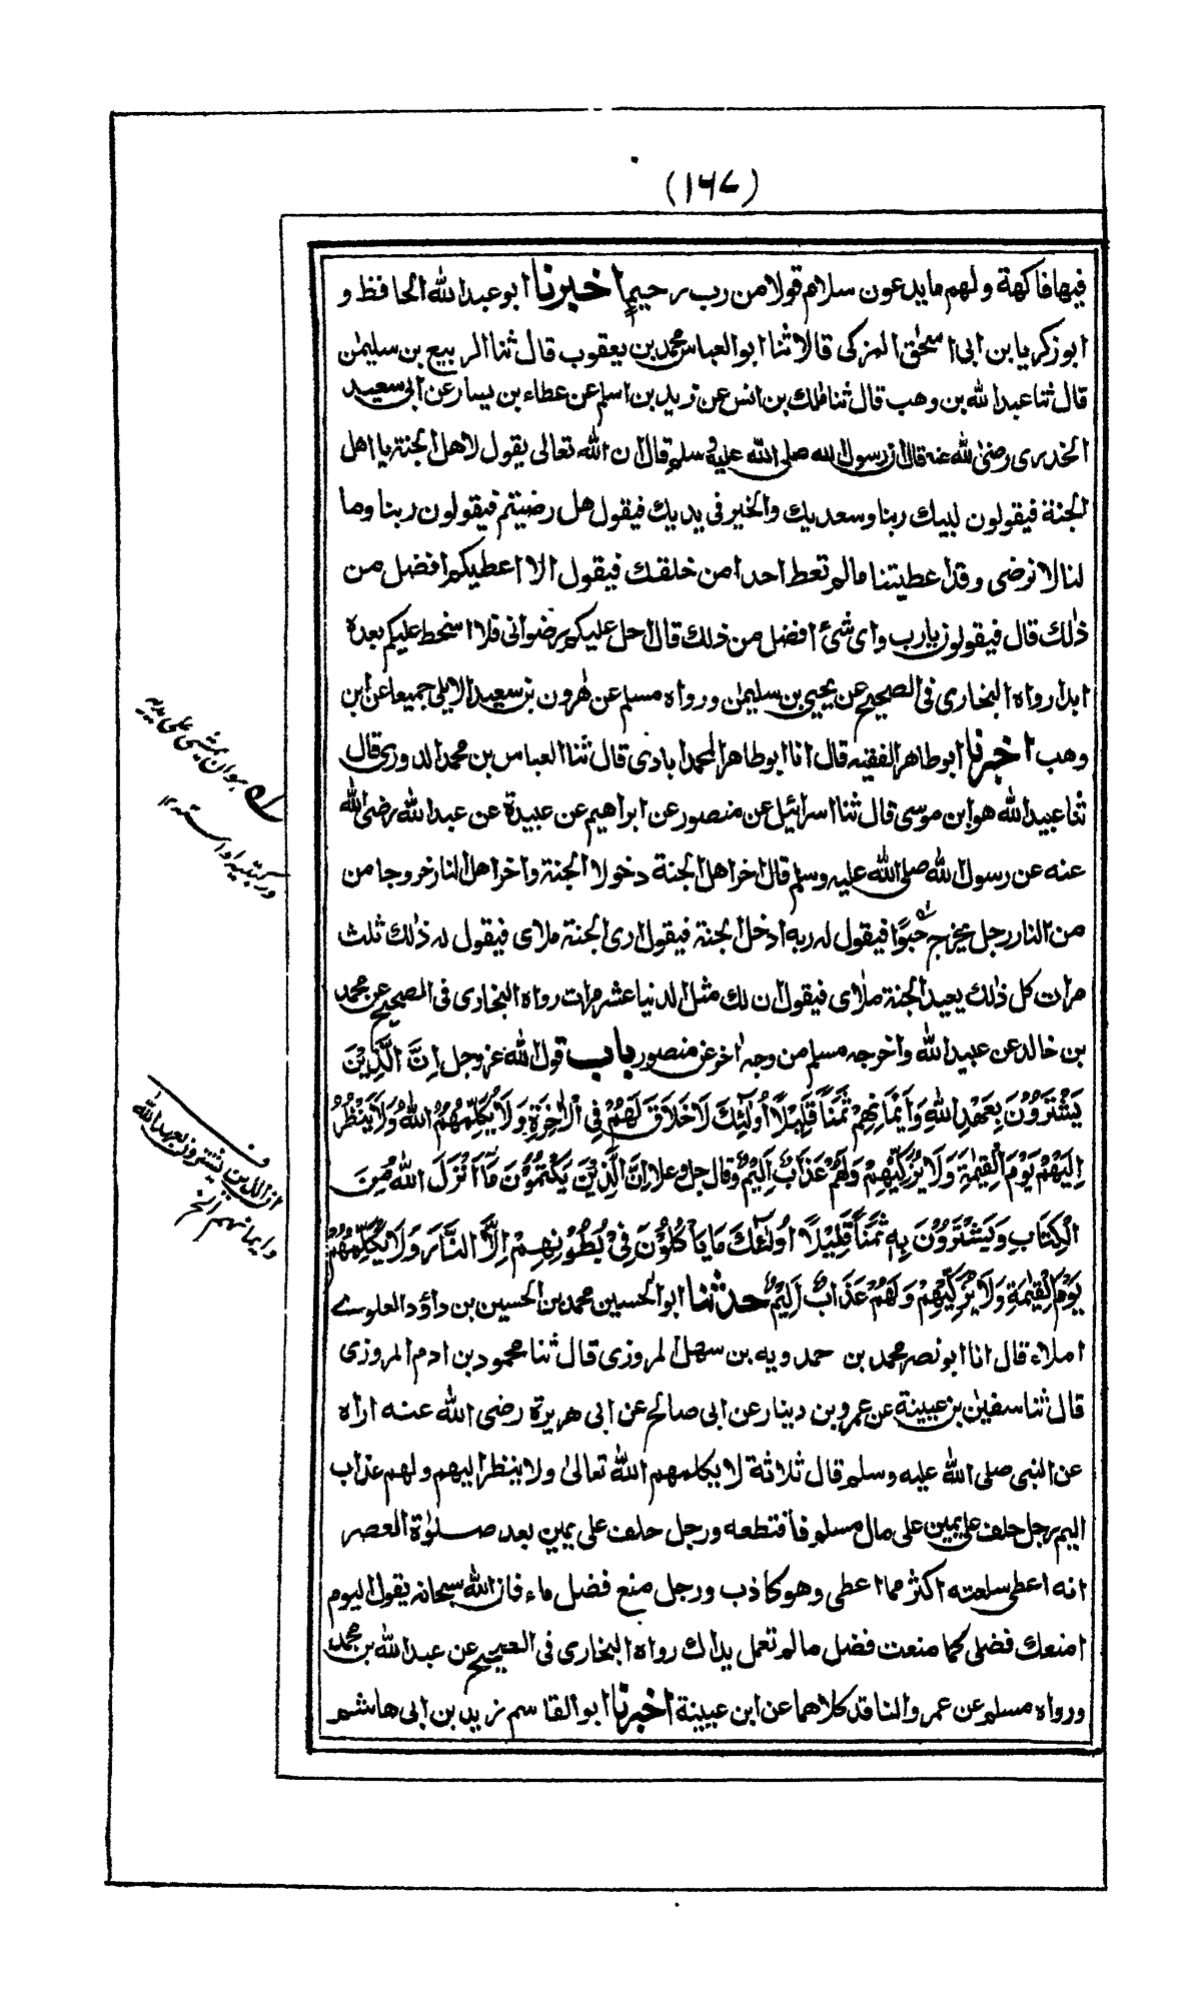 (١٦٧)
فيها فاكهة ولهم ما يدعون سلام قولا من رب رحيم اخبرنا ابو عبد الله الحافظ و
ابو زكريا بن ابى اسحٰق المزكى قالا ثنا ابو العباس محمد بن يعقوب قال ثنا الربيع بن سليمٰن
قال ثنا عبد الله بن وهب قال ثنا مٰلك بن انس عن زيد بن اسلم عن عطاء بن يسار عن ابى سعيد
الخدرى رضى الله عنه قال ان رسول الله صلى الله عليه وسلم قال ان الله تعالى يقول لاهل الجنة يا اهل
الجنة فيقولون لبيك ربنا وسعديك والخير فى يديك فيقول هل رضيتم فيقولون ربنا وما
لنا لا نرضى وقد اعطيتنا ما لم تعط احدا من خلقك فيقول الا اعطيكم افضل من
ذٰلك قال فيقولون يا رب واى شئ افضل من ذلك قال احل عليكم رضوانى فلا اسخط عليكم بعدة
ابدا رواه البخارى فى الصحيح عن يحيى بن سليمٰن ورواه مسلم عن هٰرون بن سعيد الايلى جميعا عن ابن
وهب اخبرنا ابو طاهر الفقيه قال انا ابو طاهر المحمدابادى قال ثنا العباس بن محمد الدورى قال
ثنا عبيد الله هو ابن موسى قال ثنا اسرائيل عن منصور عن ابراهيم عن عبيدة عن عبد الله رضى الله
عنه عن رسول الله صلى الله عليه وسلم قال اخر اهل الجنة دخولا الجنة واخر اهل النار خروجا من
من النار رجل يخرج حَبْوًا فيقول له ربه ادخل الجنة فيقول ارى الجنة ملاى فيقول له ذٰلك ثلث
مرات كل ذٰلك يعيد الجنة ملاٰى فيقول ان لك مثل الدنيا عشر مرات رواه البخارى فى الصحيح عن محمد
بن خالد عن عبيد الله واخرجه مسلم من وجه اٰخر عن منصور باب قول الله عز وجل اِنَّ الَّذِيْنَ
يَشْتَرُوْنَ بِعَهْدِ اللهِ وَاَيْمَانِهِمْ ثَمَنًا قَلِيْلًا اُولٰٓئِكَ لَاخَلَاقَ لَهُمْ فِى الْاٰخِرَةِ وَلَا يُكَلِّمُهُمُ اللهُ وَلَا يَنْظُرُ
اِلَيْهِمْ يَوْمَ الْقِيٰمَةِ وَلَا يُزَكِّيْهِمْ وَلَهُمْ عَذَابٌ اَلِيْمٌ وقال جل وعلا اِنَّ الَّذِيْنَ يَكْتُمُوْنَ مَا اَنْزَلَ اللهُ مِنَ
الْكِتَابِ وَيَشْتَرُوْنَ بِهٖ ثَمَنًا قَلِيْلًا اُولٰٓئِكَ مَا يَاْكُلُوْنَ فِىْ بُطُوْنِهِمْ اِلَّا النَّارَ وَلَا يُكَلِّمُهُمُ
يَوْمَ الْقِيٰمَةِ وَلَا يُزَكِّيْهِمْ وَلَهُمْ عَذَابٌ اَلِيْمٌ حدثنا ابو الحسين محمد بن الحسين بن داؤد العلوى
املاء قال انا ابو نصر محمد بن حمدويه بن سهل المروزى قال ثنا محمود بن ادم المروزى
قال ثنا سفيٰن بن عيينة عن عمرو بن دينار عن ابى صالح عن ابى هريرة رضى الله عنه اراه
عن النبى صلى الله عليه وسلم قال ثلاثة لا يكلمهم الله تعالىٰ ولا ينظر اليهم ولهم عذاب
اليم رجل حلف على يمين على مال مسلم فاقتطعه ورجل حلف على يمين بعد صلوٰة العصر
انه اعطى سلعته اكثر مما اعطى وهو كاذب ورجل منع فضل ماء فان الله سبحانه يقول اليوم
امنعك فضلى كما منعت فضل ما لم تعمل يداك رواه البخارى فى الصحيح عن عبد الله بن محمد
ورواه مسلم عن عمرو الناقد كلاهما عن ابن عيينة اخبرنا ابو القاسم زيد بن ابى هاشم
هو ان يمشى على يديه
وركبتيه او استه ١٢
ان الذين يشترون بعهد الله
وايمانهم الخ